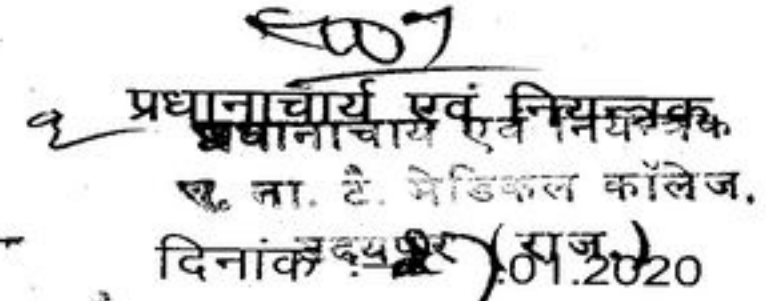 प्रधानाचार्य एवं नियन्त्रक
प्रधानाचार्य एवं नियन्त्रक
ना. टै. मेडिकल कॉलेज,
उदयपुर (राज.)
दिनांक :- .01.2020